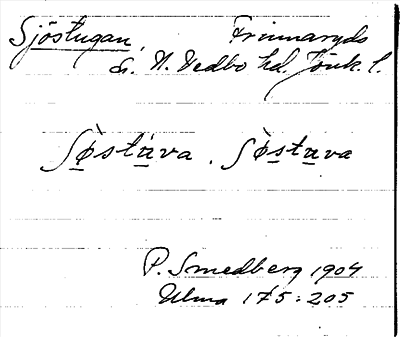 Sjöstugan, Frinnaryds
s. N. Vedbo hd. Jönk. l.
Sø̀stùva. Sø̀stuva
P. Smedberg 1904
Ulma 175:205